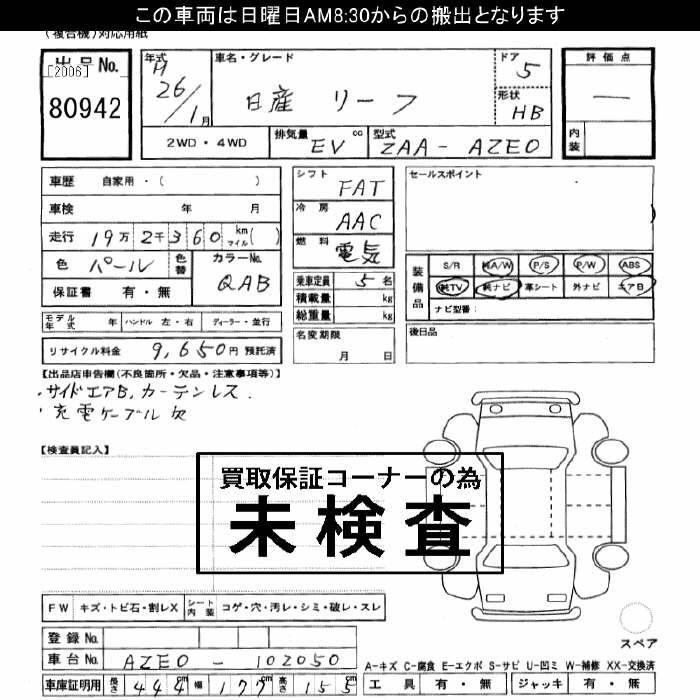 この車両は日曜日AM8:30からの搬出となります
(複合機)対応用紙
出品No.
[2006]
80942
年式 H 26/1月
車名・グレード
日産 リーフ
ドア 5
形状 HB
評価点
—
内装
2WD・4WD
排気量 EV cc
型式 ZAA-AZE0
車歴 自家用・( )
車検 年 月
走行 19万2千360 km マイル( )
色 パール 色替
カラーNo. QAB
保証書 有・無
シフト FAT
冷房 AAC
燃料 電気
乗車定員 5名
積載量 kg
総重量 kg
セールスポイント
装備品
S/R 純A/W P/S P/W ABS
純TV 純ナビ 革シート 外ナビ エアB
ナビ型番:
モデル年式 年 ハンドル 左・右 ディーラー・並行
リサイクル料金 9,650円 預託済
名変期限
月 日
後日品
【出品店申告欄(不良箇所・欠品・注意事項等)】
サイドエアB,カーテンレス.
充電ケーブル欠
【検査員記入】
買取保証コーナーの為
未検査
FW キズ・トビ石・割レX シート内装 コゲ・穴・汚レ・シミ・破レ・スレ
登録No.
車台No. AZE0-102050
車庫証明用 長さ 444cm 幅 177cm 高さ 155cm
スペア
A-キズ C-腐食 E-エクボ S-サビ U-凹ミ W-補修 XX-交換済
工具 有・無 ジャッキ 有・無